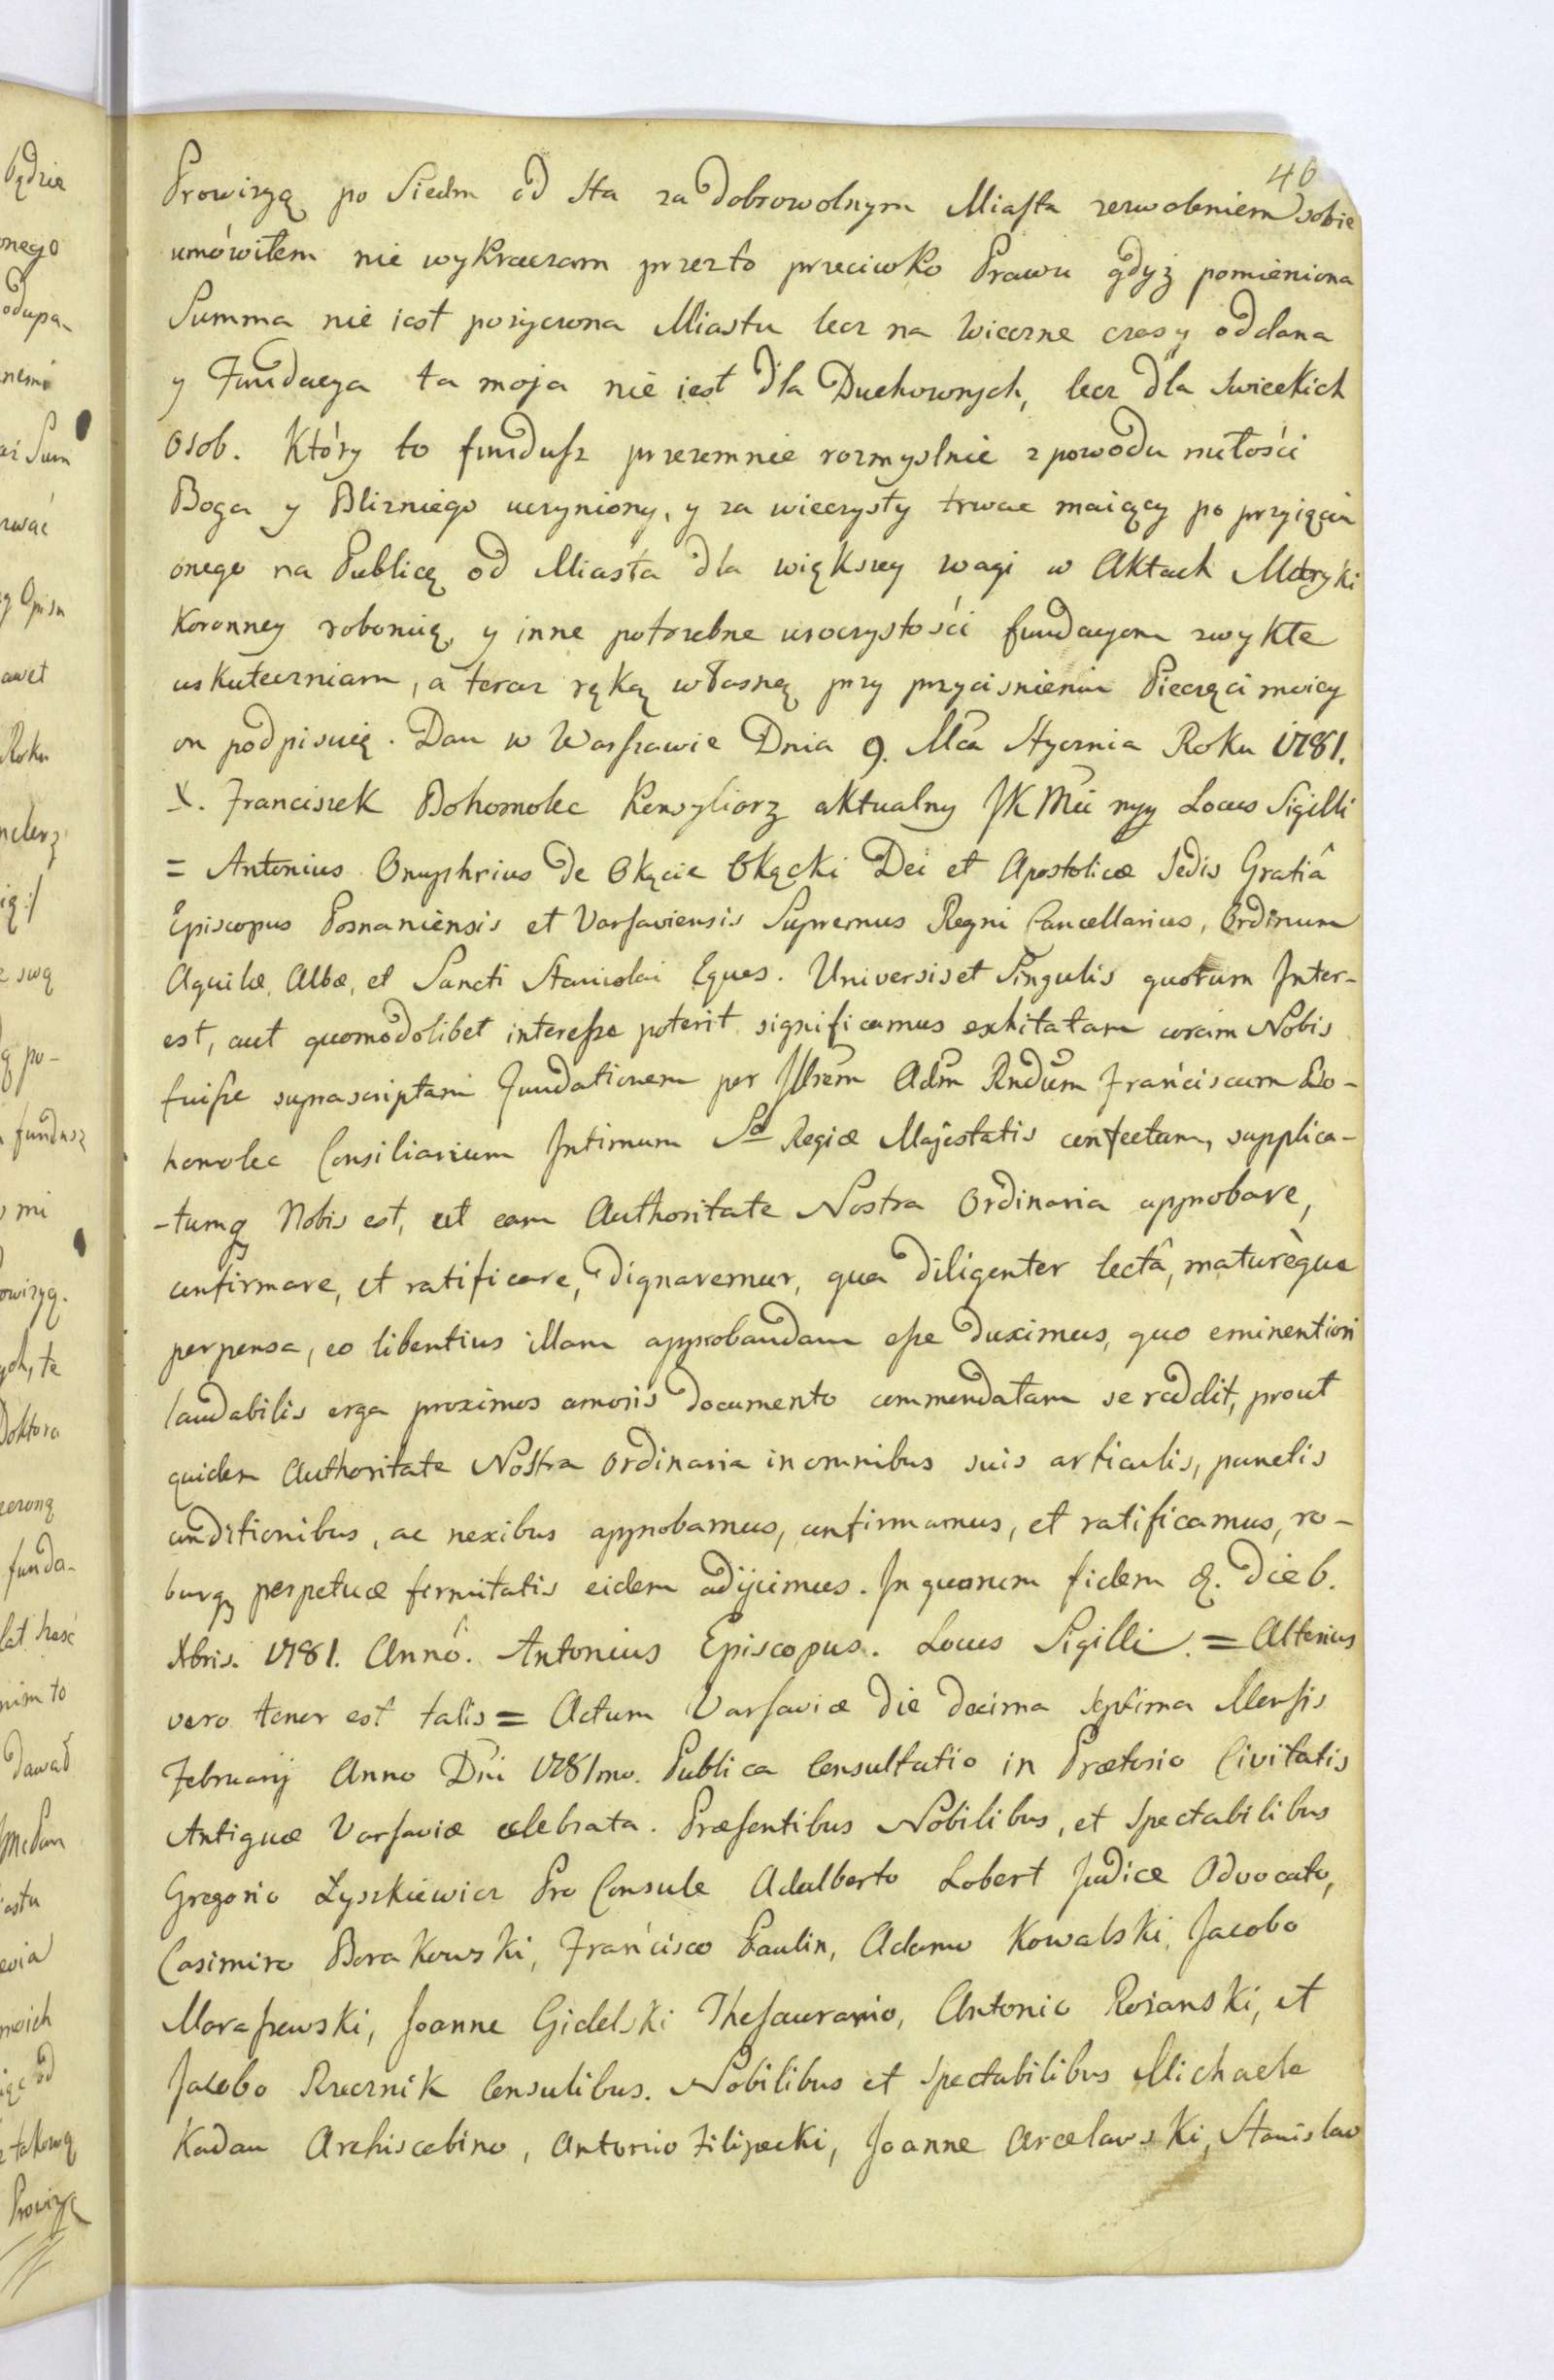 46
Prowizyą po Siedm od Sta za dobrowolnym Miasta zezwoleniem sobie
umówiłem nie wykraczam przezto przeciwko Prawu gdyż pomieniona
Summa nie iest pożyczona Miastu lecz na Wieczne czasy oddana
y Fundacya ta moja nie iest dla Duchownych, lecz dla Swieckich
osob. Który to fundusz przezemnie rozmyslnie z powodu miłości
Boga y Blizniego uczyniony, y za wieczysty trwac maiący po przyięciu
onego na Publicę od Miasta dla większey wagi w Aktach Metryki
Koronney roboruię, y inne potrzebne uroczystości fundacyom zwykłe
uskuteczniam, a teraz ręką własną przy przycisnieniu Pieczęci moiey
on podpisuię. Dan w Warszawie Dnia 9. Mca Stycznia Roku 1781.
X. Franciszek Bohomolec Konsyliarz aktualny JK Mci mpp Locus Sigilli
= Antonius Onuphrius de Okęcie Okęcki Dei et Apostolicæ Sedis Gratiâ
Episcopus Posnaniensis et Varsaviensis Supremus Regni Cancellarius, Ordinum
Aquilæ Albæ, et Sancti Stanislai Eques. Universis et Singulis quorum Inter-
est, aut quomodolibet interesse poterit significamus exhibitatam coram Nobis
fuisse suprascriptam Fundationem per Jllrem Adm Rndum Franciscum Bo-
homolec Consiliarium Intimum Sæ Regiæ Majestatis confectam, supplica-
-tumq Nobis est, ut eam Authoritate Nostra Ordinaria approbare,
confirmare, et ratificare, dignaremur, qua diligenter lectâ, maturèque
perpensa, eo libentius illam approbandam esse duximus, quo eminentiori
laudabilis erga proximos amoris documento commendatam se reddit, prout
quidem Authoritate Nostra ordinaria in omnibus suis articulis, punctis
conditionibus, ac nexibus approbamus, confirmamus, et ratificamus, ro-
burq perpetuæ firmitatis eidem adijcimus. In quorum fidem &. Die 6.
Xbris. 1781. Annô. Antonius Episcopus. Locus Sigilli. = Alterius
vero tenor est talis = Actum Varsaviæ die decima septima Mensis
Februarij Anno Dni 1781mo. Publica Consultatio in Prætorio Civitatis
Antiquæ Varsaviæ celebrata. Præsentibus Nobilibus, et Spectabilibus
Gregorio Łyszkiewicz Pro Consule Adalberto Lobert Judice Advocato,
Casimiro Borakowski, Francisco Paulin, Adamo Kowalski, Jacobo
Maraszewski, Joanne Gidelski Thesaurario, Antonio Rożanski, et
Jacobo Rzecznik Consulibus. Nobilibus et Spectabilibus Michaele
Kadau Archiscabino, Antonio Filipecki, Joanne Arcelawski, Stanislao